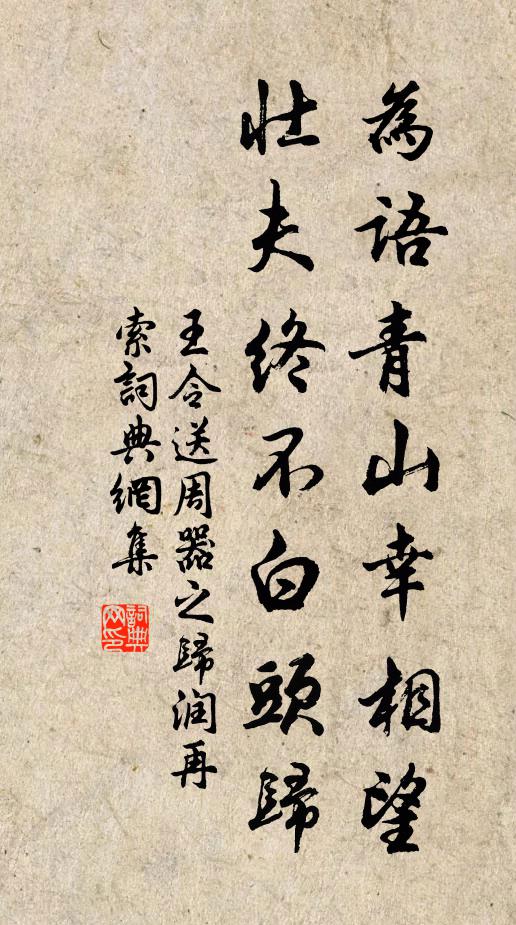 為語青山幸相望
壯夫終不白頭歸
王令送周器之歸潤再
索詞典網集
詞典
网印